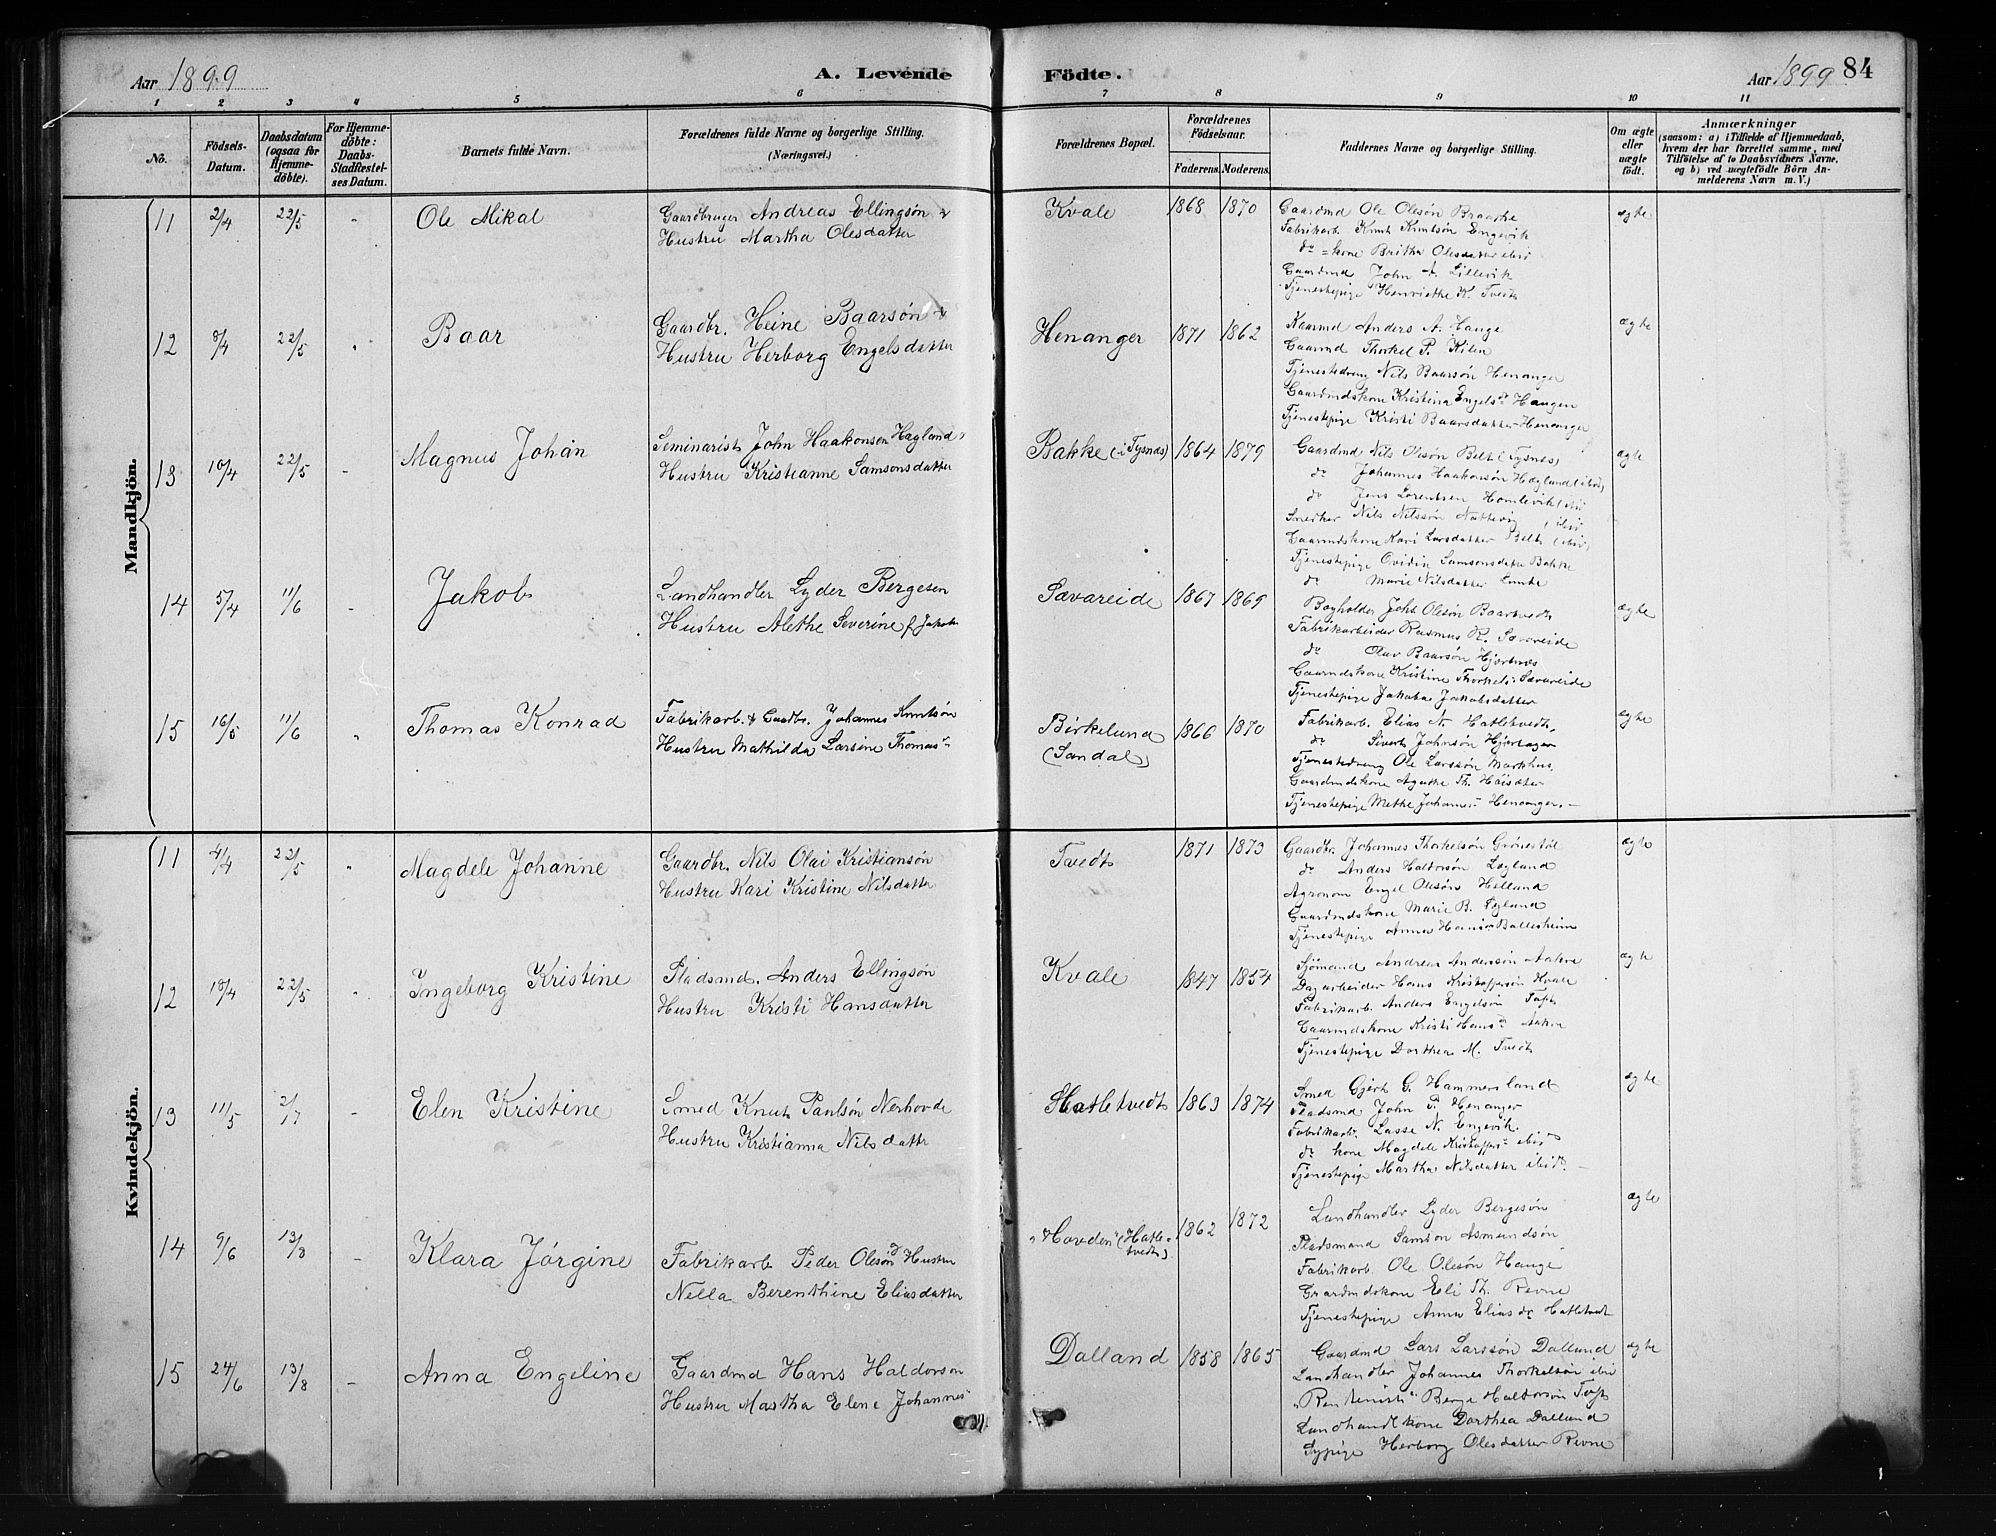 Aar 1899 A. Levende Födte. Aar 1899 84
1 2 3 4 5 6 7 8 9 10 11
No. Födsels-Datum. Daabsdatum (ogsaa for Hjemmedöbte). For Hjemmedöbte: Daabs-Stadfæstelses Datum. Barnets fulde Navn. Forældrenes fulde Navne og borgerlige Stilling. (Næringsvei.) Forældrenes Bopæl. Forældrenes Födselsaar. Faderens. Moderens. Faddernes Navne og borgerlige Stilling. Om ægte eller uægte födt. Anmærkninger (saasom: a) i Tilfælde af Hjemmedaab, hvem der har forrettet samme, med Tilföielse af to Daabsvidners Navne, og b) ved uægtefödte Börn Anmelderens Navn m. V.)
Mandkjön.
11 2/4 22/5 " Ole Mikal
Gaardbruger Andreas Ellingsön &
Hustru Martha Olesdatter
Kvale 1868 1870
Gaardmd Ole Olesön Braathe
Fabrikarb Knut Knutsön Engevik
do = kone Britha Olesdatter ibid
Gaardmd John A. Lillevik
Tjenestepige Henriette K. Tvedt
ægte
12 8/4 22/5 " Baar
Gaardbr. Heine Baarsön &
Hustru Herborg Engelsdatter
Henanger 1871 1862
Gaarmd Anders A. Hauge
Gaarmd Thorkel P. Kilen
Tjenestedreng Nils Baarsön Henanger
Gaardmdskone Kristina Engelsdr Haugen
Tjenestepige Kristi Baarsdatter Henanger
ægte
13 10/4 22/5 - Magnus Johan
Seminarist John Haakonsen Hagland &
Hustru Kristianne Samsonsdatter
Bakke (i Tysnæs) 1864 1879
Gaardmd Nils Olsön Belt (Tysnes)
do Johannes Haakonsön Hagland (ibid)
do Jens Lorentsen Hamlevik (ibid
Snedker Nils Nilssön Nattevig (ibid
Gaarmdskone Kari Larsdatter Belt (ibid)
Tjenestepige Ovidia Samsonsdatter Bakke
do Marie Nilsdatter Lunde
ægte
14 5/4 11/6 - Jakob
Landhandler Lyder Bergesen
Hustru Alethe Severine f. Jakob
Sævareide 1867 1869
Bogholder Johs Olesön Baartvedt
Fabrikarbeider Rasmus R. Sævareide
do Olav Baarsön Hjortnæs
Gaarmdskone Kristine Thorkels- Sævareide
Tjenestepige Jakoba Jakobsdatter
ægte
15 16/5 11/6 " Thomas Konrad
Fabrikarb. & Gaardbr. Johannes Knutsön
Hustru Mathilda Larsine Thomasdr
Birkelund (Sandal) 1866 1870
Fabrikarb. Elias N. Hatletvedt,
do Sivert Johnsön Hjortager
Tjenestedreng Ole Larssön Markhus,
Gaardmdskone Agathe Th. Höisæter
Tjenestepige Mette Johannes- Henanger. -
ægte
Kvindekjön.
11 4/4 22/5 " Magdele Johanne
Gaardbr. Nils Olai Kristiansön
Hustru Kari Kristine Nilsdatter
Tvedt 1871 1873
Gaardbr. Johannes Thorkelsön Grönestöl
do Anders Haldorsön Lygland
Agronom Engel Olesön Helland
Gaardmdskone Marie B. Lygland
Tjenestepige Anna Hansdr Ballesheim
ægte
12 18/4 22/5 - Ingeborg Kristine
Pladsmd. Anders Ellingsön
Hustru Kristi Hansdatter
Kvale 1847 1854
Sjömand Andreas Anderssön Aakre
Dagarbeider Hans Kristoffersön Kvale
Fabrikarb. Anders Engelsön Toft
Gaarmdskone Kristi Hansdr Aakre
Tjenestepige Dorthea M. Tvedt
ægte
13 11/5 2/7 - Elen Kristine
Smed Knut Paulsön Nerhovde
Hustru Kristianna Nilsdattr
Hatletvedt 1863 1874
Smed Gjert G. Hammersland
Pladsmd John P. Henanger
Fabrikarb. Lasse N. Engevik.
do kone Magdele Kristoffers- ibid
Tjenestepige Martha Nilsdatter ibid. -
ægte
14 9/6 13/8 - Klara Jörgine
Fabrikarb Peder Olesön & Hustru
Nella Berenthine Eliasdatter
"Hovden" (Hatletvedt) 1862 1872
Landhandler Lyder Bergesön
Pladsmand Samson Asmundsön
Fabrikarb. Ole Olesön Hauge
Gaardmdskone Eli Th. Revne
Tjenestepige Anna Eliasdr Hatletvedt
ægte
15 24/6 13/8 - Anna Engeline
Gaardmd Hans Haldorsön
Hustru Martha Elene Johannes-
Dalland 1858 1865
Gaardmd Lars Larssön Dalland
Landhandler Johannes Thorkelsön ibid
"Rentenist" Berge Haldorsön Toft
Landhandlkone Dorthea Dalland
Sypige Herborg Olesdatter Revne
ægte